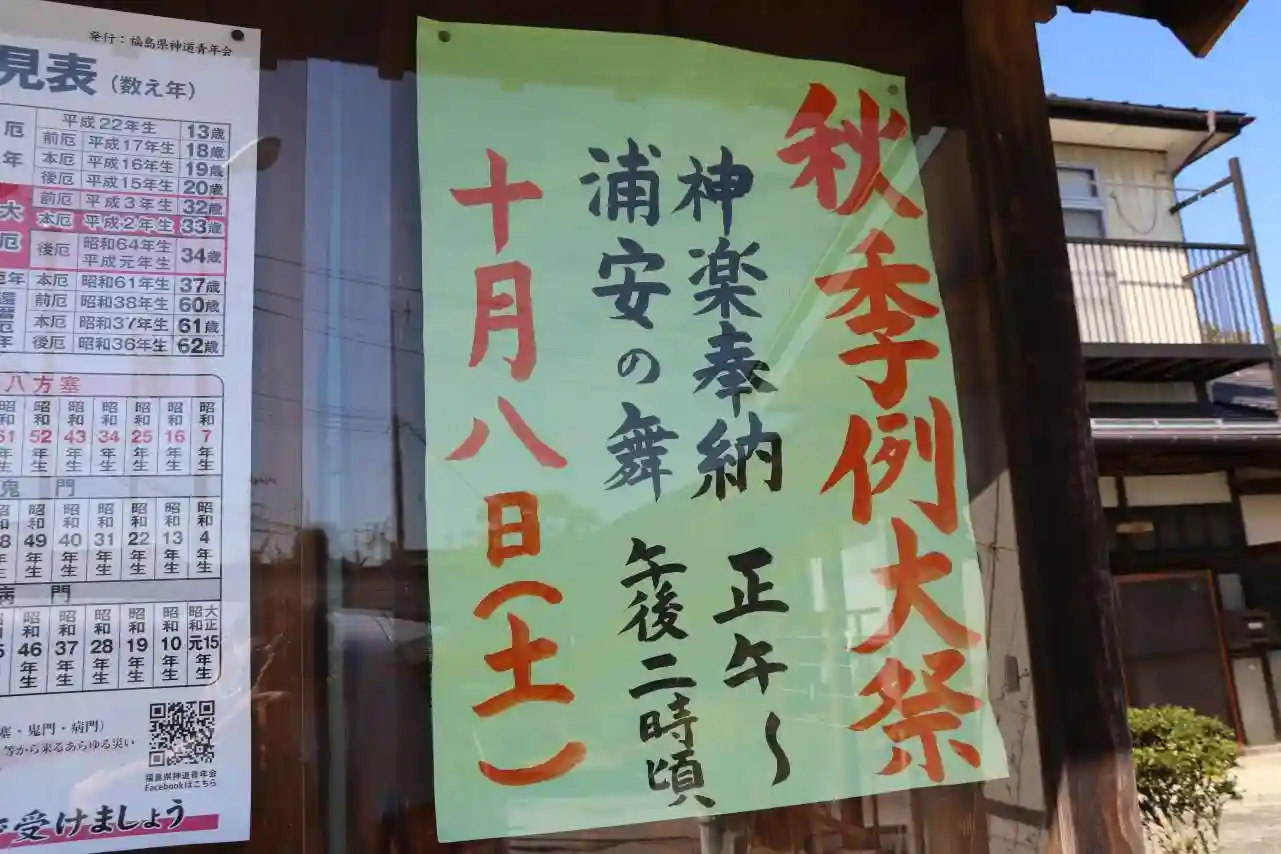 秋季例大祭
神楽奉納 正午～
浦安の舞 午後二時頃
十月八日(土)
発行：福島県神道青年会
見表（数え年）
厄年
平成22年生 13歳
前厄 平成17年生 18歳
本厄 平成16年生 19歳
後厄 平成15年生 20歳
大厄
前厄 平成3年生 32歳
本厄 平成2年生 33歳
後厄 昭和64年生 平成元年生 34歳
厄年 本厄 昭和61年生 37歳
還暦厄年
前厄 昭和38年生 60歳
本厄 昭和37年生 61歳
後厄 昭和36年生 62歳
八方塞
昭和7年生
昭和16年生
昭和25年生
昭和34年生
昭和43年生
昭和52年生
昭和61年生
鬼門
昭和4年生
昭和13年生
昭和22年生
昭和31年生
昭和40年生
昭和49年生
8年生
病門
大正15 昭和元年生
昭和10年生
昭和19年生
昭和28年生
昭和37年生
昭和46年生
5年生
塞・鬼門・病門）
等から来るあらゆる災い
福島県神道青年会
Facebookはこちら
受けましょう